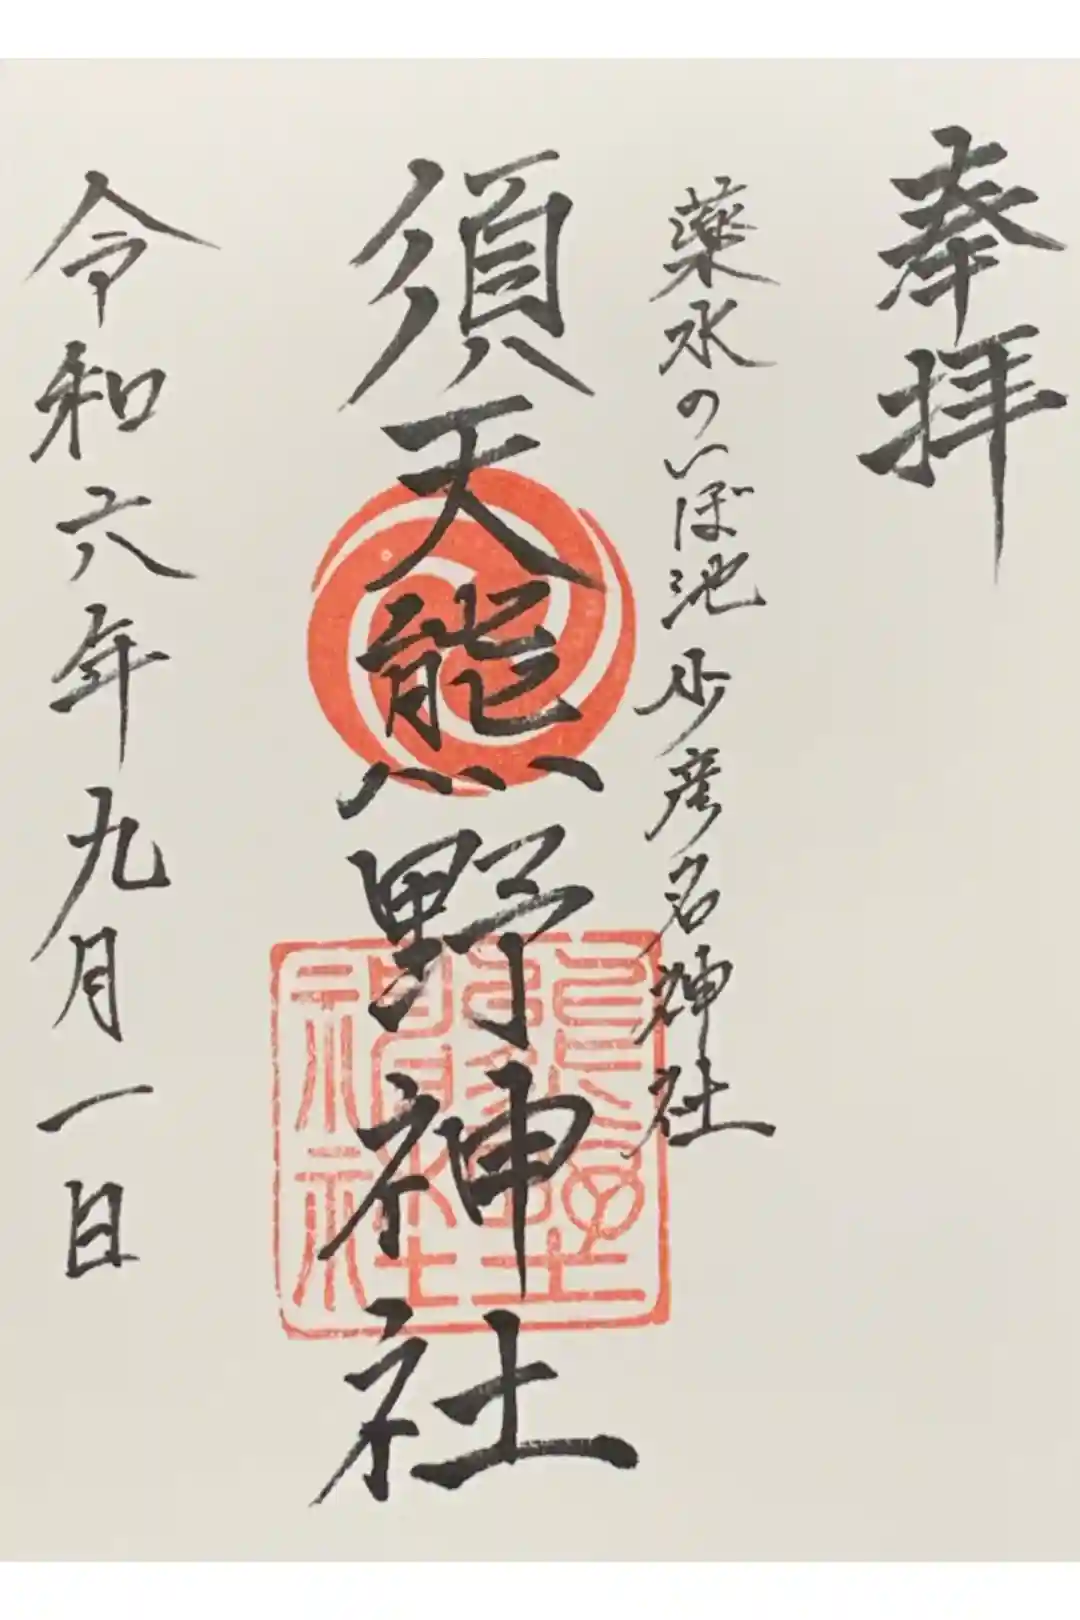 奉拝
薬水のいぼ池少彦名神社
須天熊野神社
令和六年九月一日
熊野神社